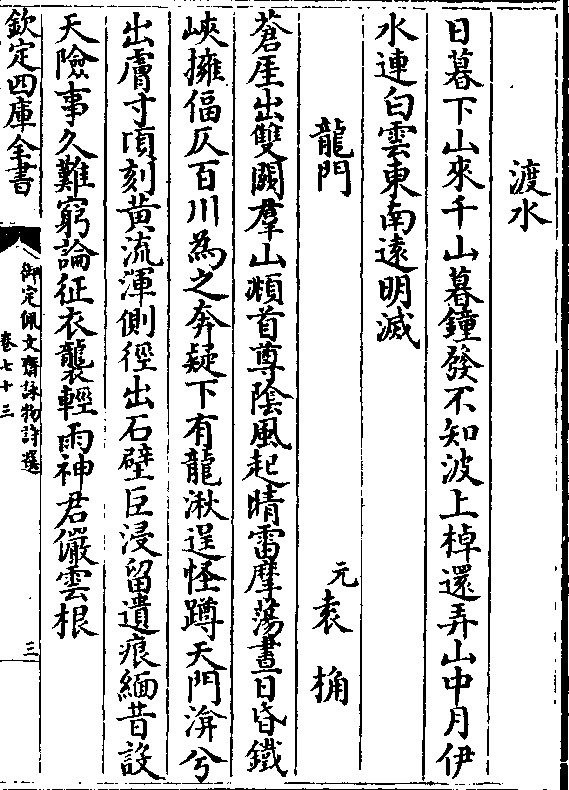 渡水
日暮下山來千山暮鐘發不知波上棹還弄山中月伊
水連白雲東南遠明滅
龍門 元袁桷
蒼厓出雙闕羣山頫首尊陰風起晴雷摩蕩晝日昏鐵
峽擁偪仄百川為之奔疑下有龍湫逞怪蹲天門渀兮
出膚寸頃刻黃流渾側徑出石壁巨浸留遺痕緬昔設
天險事久難窮論征衣襲輕雨神君儼雲根
欽定四庫全書
御定佩文齋詠物詩選
卷七十三
三